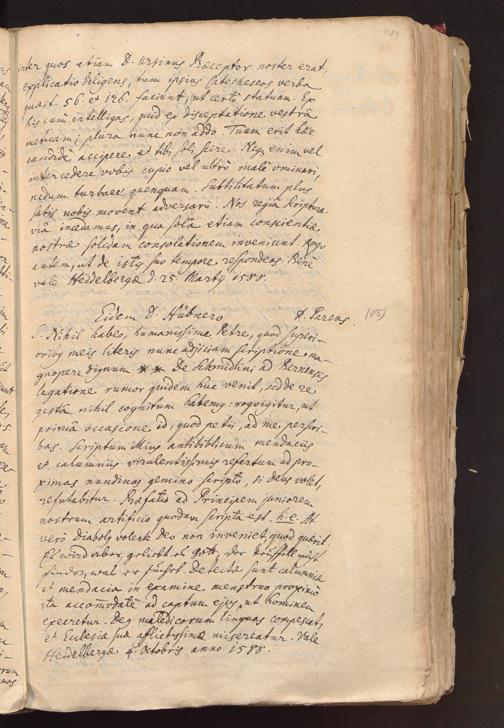 inter quos etiam D. Ursinus Præceptor noster erat,
explicatio diligens, tum ipsius Catecheseos verba
quæst. 56. et 126. faciunt, ut certi statuam. Ex
his cum intelligas, quid ex disceptatione vestra
metuam, plura nunc non addo. Tuum erit hæc
candide accipere, et tibi scire. Neq enim vel
intercedere vobis cupio vel ultro male ominari,
nedum turbare quenquam. Subtilitatum plus
satis nobis movent adversarii. Nos regia scripturæ
via incedamus, in qua sola etiam conscientiæ
nostræ solidam consolationem inveniunt. Rogo
autem, ut de istis suo tempore respondeas. Bene
vale Heidelbergæ d. 25 Martij 1588.
Eidem D. Hübnero D. Pareus. (105)
S. Nihil habeo, humanissime Petre, quod superi-
oribq meis literis nunc adjiciam scriptione ma-
gnopere dignum ** De Schmidlini ad Bernenses
legatione rumor quidem huc venit, sed de re
gesta nihil cognitum habemq. rogo igitur, ut
prima occasione id, quod petii, ad me perscri-
bas. Scriptum illius antibiblicum mendaciis
et calumniis virulentissimis refertum ad pro-
ximas nundinas gemino scripto, si Deus volet,
refutabitur. Præfatio ad Principem juniorem
nostrum artificio quodam scripta est. h. e. At
vero diabolq volente Deo non inveniet, quod quærit.
gelobt sei Gott, der
Detectæ sunt calumniæ
et mendacia in examine menstruo proximo
ita accom̄odate ad captum ejq, ut hominem
execretur. Deq maledicorum linguas compescat,
et Ecclesiæ suæ afflictissimæ misereatur. Vale
Heidelbergæ 4. Octobris anno 1588.